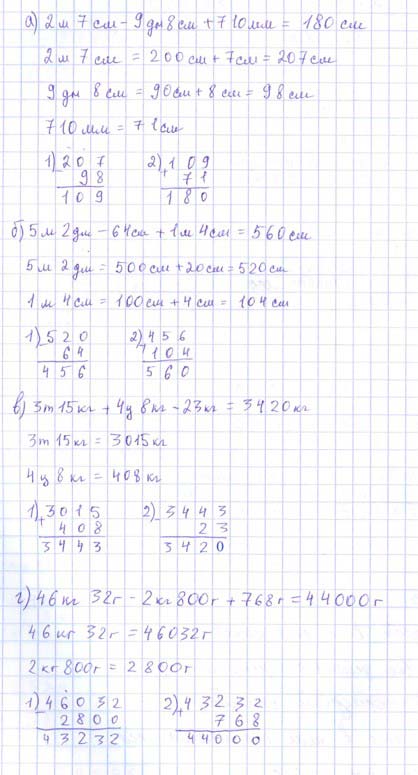 а) 2м 7см - 9дм 8см + 710мм = 180см
2м 7см = 200см + 7см = 207см
9дм 8см = 90см + 8см = 98см
710мм = 71см
1) 207 2) 109
- 98 + 71
109 180
б) 5м 2дм - 64см + 1м 4см = 560см
5м 2дм = 500см + 20см = 520см
1м 4см = 100см + 4см = 104см
1) 520 2) 456
- 64 + 104
456 560
в) 3т 15кг + 4ц 8кг - 23кг = 3420кг
3т 15кг = 3015кг
4ц 8кг = 408кг
1) 3015 2) 3443
+ 408 - 23
3443 3420
г) 46кг 32г - 2кг 800г + 768г = 44000г
46кг 32г = 46032г
2кг 800г = 2800г
1) 46032 2) 43232
- 2800 + 768
43232 44000